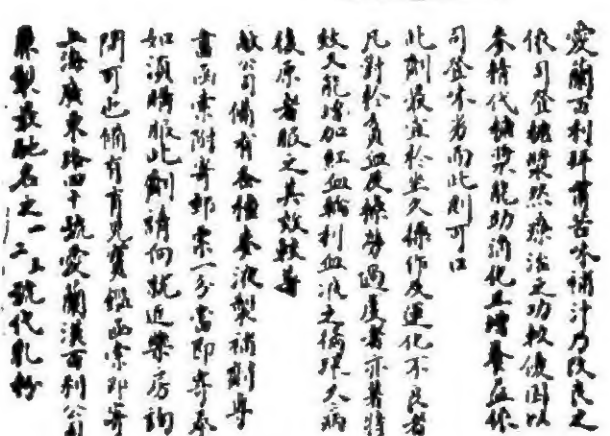 愛蘭百利拜有苦味補汁乃改良之
依司登糖漿然療治之功較優因以
麥精代糖漿能助消化且增養益依
司登味苦而此則可口
此劑最宜於坐久操作及運化不良者
凡對於貧血及操勞過度者亦著特
效又能增加紅血輪利血液之循環大病
後原者服之其效較著
敝公司備有各種麥液製補劑專
書函索附寄郵票一分當即寄奉
如須購服此劑請向就近藥房詢
問可也備有育兒寶鑑函索即寄
上海廣東路四十號愛蘭漢百利公司
兼製最馳名之一二三號代乳粉